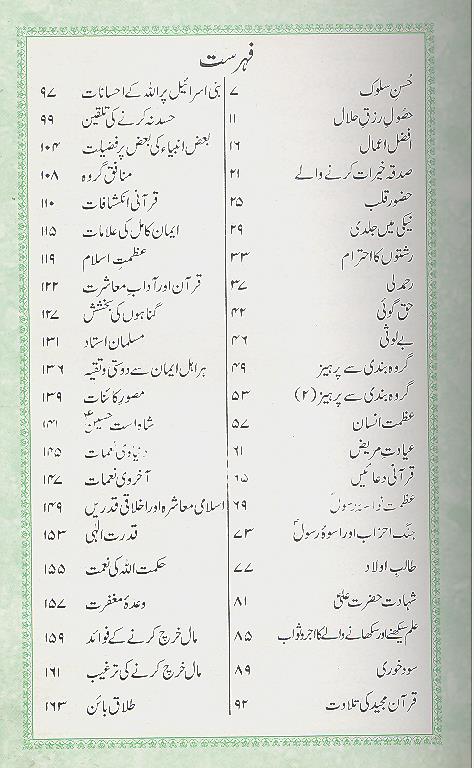 فہرست
حُسن سلوک ۷
حصولِ رزقِ حلال ۱۱
افضل اعمال ۱۶
صدقہ خیرات کرنے والے ۲۱
حضور قلب ۲۵
نیکی میں جلدی ۲۹
رشتوں کا احترام ۳۳
رحمدلی ۳۷
حق گوئی ۴۲
بے لوثی ۴۶
گروہ بندی سے پرہیز ۴۹
گروہ بندی سے پرہیز (۲) ۵۳
عظمت انسان ۵۷
عیادتِ مریض ۶۱
قرآنی دعائیں ۶۵
عظمت نواسۂ رسولؐ ۶۹
جنگ احزاب اور اسوۂ رسولؐ ۷۳
طالبِ اولاد ۷۷
شہادت حضرت علیؑ ۸۱
علم سیکھنے اور سکھانے والے کا اجر و ثواب ۸۵
سود خوری ۸۹
قرآن مجید کی تلاوت ۹۲
بنی اسرائیل پر اللہ کے احسانات ۹۷
حسد نہ کرنے کی تلقین ۹۹
بعض انبیاء کی بعض پر فضیلت ۱۰۴
منافق گروہ ۱۰۸
قرآنی انکشافات ۱۱۰
ایمان کامل کی علامات ۱۱۵
عظمتِ اسلام ۱۱۹
قرآن اور آداب معاشرت ۱۲۲
گناہوں کی بخشش ۱۲۷
مسلمان استاد ۱۳۱
ہر اہل ایمان سے دوستی و تقیہ ۱۳۶
مصورِ کائنات ۱۳۹
شاہ است حسینؑ ۱۴۱
دنیاوی نعمات ۱۴۵
آخروی نعمات ۱۴۷
اسلامی معاشرہ اور اخلاقی قدریں ۱۴۹
قدرت الٰہی ۱۵۳
حکمت اللہ کی نعمت ۱۵۵
وعدۂ مغفرت ۱۵۷
مال خرچ کرنے کے فوائد ۱۵۹
مال خرچ کرنے کی ترغیب ۱۶۱
طلاق بائن ۱۶۳